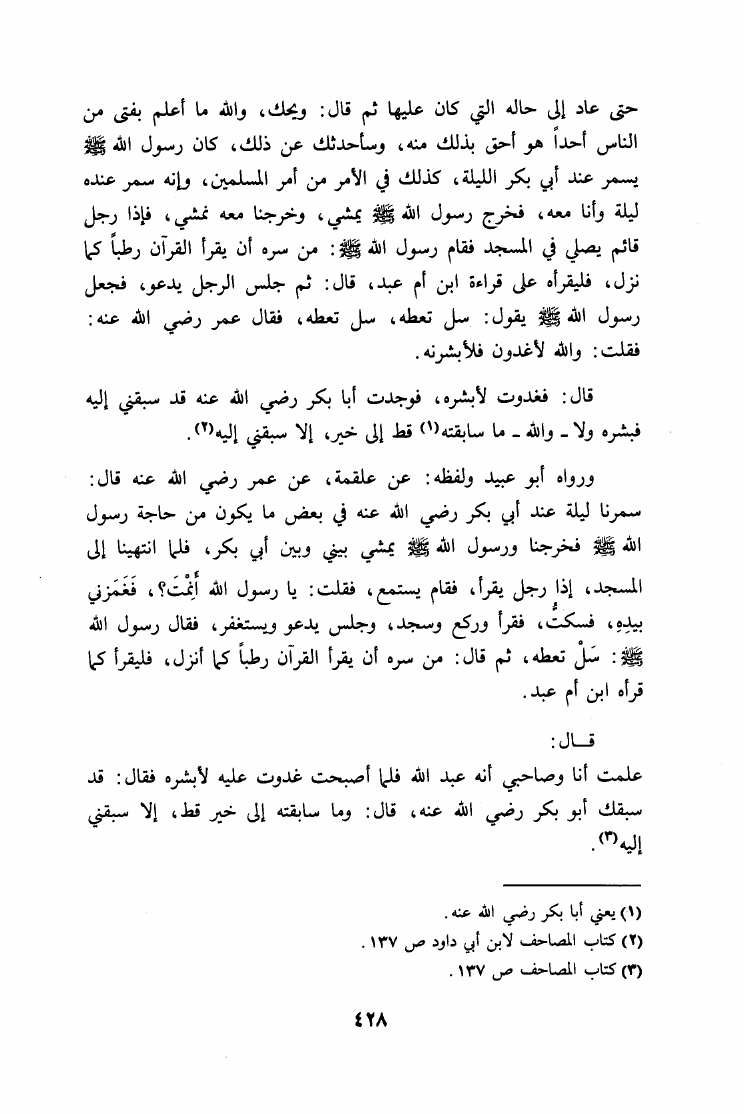 حتى عاد إلى حاله التي كان عليها ثم قال: ويحك، والله ما أعلم بفتى من
الناس أحداً هو أحق بذلك منه، وسأحدثك عن ذلك، كان رسول الله ﷺ
يسمر عند أبي بكر الليلة، كذلك في الأمر من أمر المسلمين، وإنه سمر عنده
ليلة وأنا معه، فخرج رسول الله ﷺ يمشي، وخرجنا معه نمشي، فإذا رجل
قائم يصلي في المسجد فقام رسول الله ﷺ: من سره أن يقرأ القرآن رطباً كما
نزل، فليقرأه على قراءة ابن أم عبد، قال: ثم جلس الرجل يدعو، فجعل
رسول الله ﷺ يقول: سل تعطه، سل تعطه، فقال عمر رضي الله عنه:
فقلت: والله لأغدون فلأبشرنه.
قال: فغدوت لأبشره، فوجدت أبا بكر رضي الله عنه قد سبقني إليه
فبشره ولا ـ والله ـ ما سابقته(١) قط إلى خير، إلا سبقني إليه(٢).
ورواه أبو عبيد ولفظه: عن علقمة، عن عمر رضي الله عنه قال:
سمرنا ليلة عند أبي بكر رضي الله عنه في بعض ما يكون من حاجة رسول
الله ﷺ فخرجنا ورسول الله ﷺ يمشي بيني وبين أبي بكر، فلما انتهينا إلى
المسجد، إذا رجل يقرأ، فقام يستمع، فقلت: يا رسول الله أَنِمْتَ؟، فَغَمَزني
بيدِهِ، فسكتُّ، فقرأ وركع وسجد، وجلس يدعو ويستغفر، فقال رسول الله
ﷺ: سَلْ تعطه، ثم قال: من سره أن يقرأ القرآن رطباً كما أنزل، فليقرأ كما
قرأه ابن أم عبد.
قــال:
علمت أنا وصاحبي أنه عبد الله فلما أصبحت غدوت عليه لأبشره فقال: قد
سبقك أبو بكر رضي الله عنه، قال: وما سابقته إلى خير قط، إلا سبقني
إليه(٣).
(١) يعني أبا بكر رضي الله عنه.
(٢) كتاب المصاحف لابن أبي داود ص ١٣٧.
(٣) كتاب المصاحف ص ١٣٧.
٤٢٨